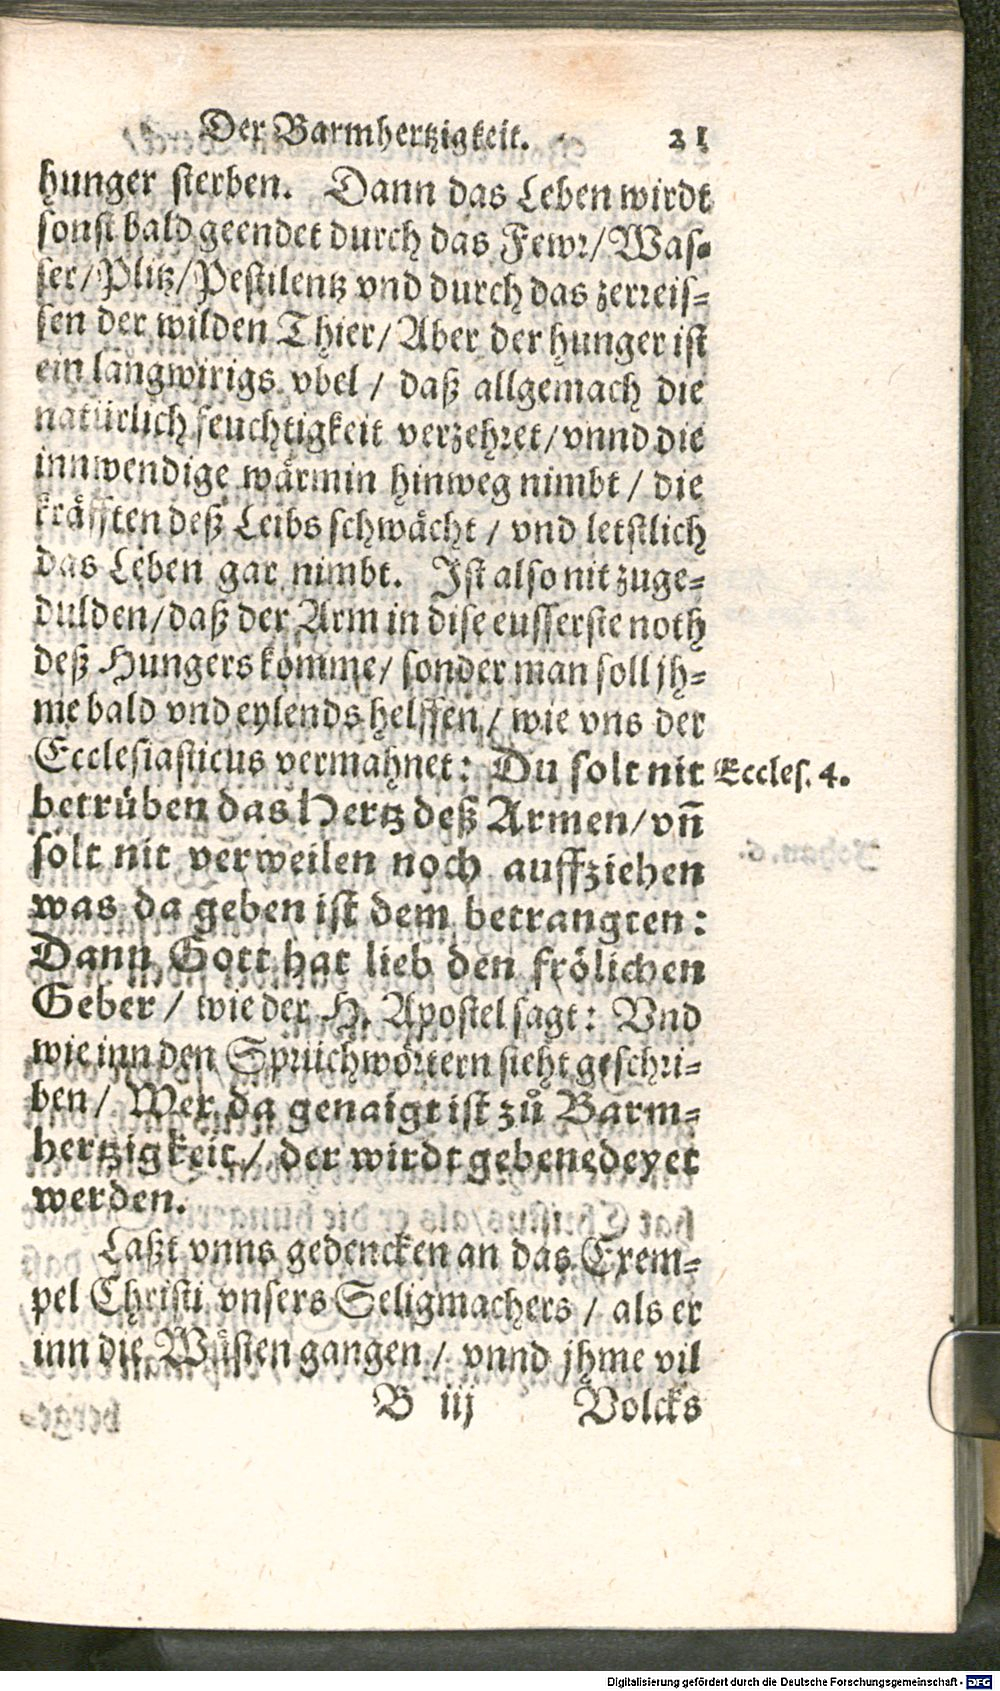 Der Barmhertzigkeit. 21
hunger sterben. Dann das Leben wirdt
sonst bald geendet durch das Fewr/Was-
ser/Plitz/Pestilentz vnd durch das zerreis-
sen der wilden Thier/Aber der hunger ist
ein langwirigs vbel / daß allgemach die
natürlich feuchtigkeit verzehret/vnnd die
innwendige wärmin hinweg nimbt / die
kräfften deß Leibs schwächt / vnd letstlich
das Leben gar nimbt. Ist also nit zuge-
dulden/daß der Arm in dise eusserste noth
deß Hungers komme/ sonder man soll jh-
me bald vnd eylends helffen / wie vns der
Ecclesiasticus vermahnet: Du solt nit
Eccles. 4.
betrüben das Hertz deß Armen/vn̄
solt nit verweilen noch auffziehen
was da geben ist dem betrangten:
Dann Gott hat lieb den frölichen
Geber / wie der H. Apostel sagt: Vnd
wie inn den Sprüchwörtern steht geschri-
ben / Wer da genaigt ist zů Barm-
hertzigkeit / der wirdt gebenedeyet
werden.
Laßt vnns gedencken an das Exem-
pel Christi vnsers Seligmachers / als er
inn die Wüsten gangen / vnnd jhme vil
B iij Volcks
Digitalisierung gefördert durch die Deutsche Forschungsgemeinschaft - DFG